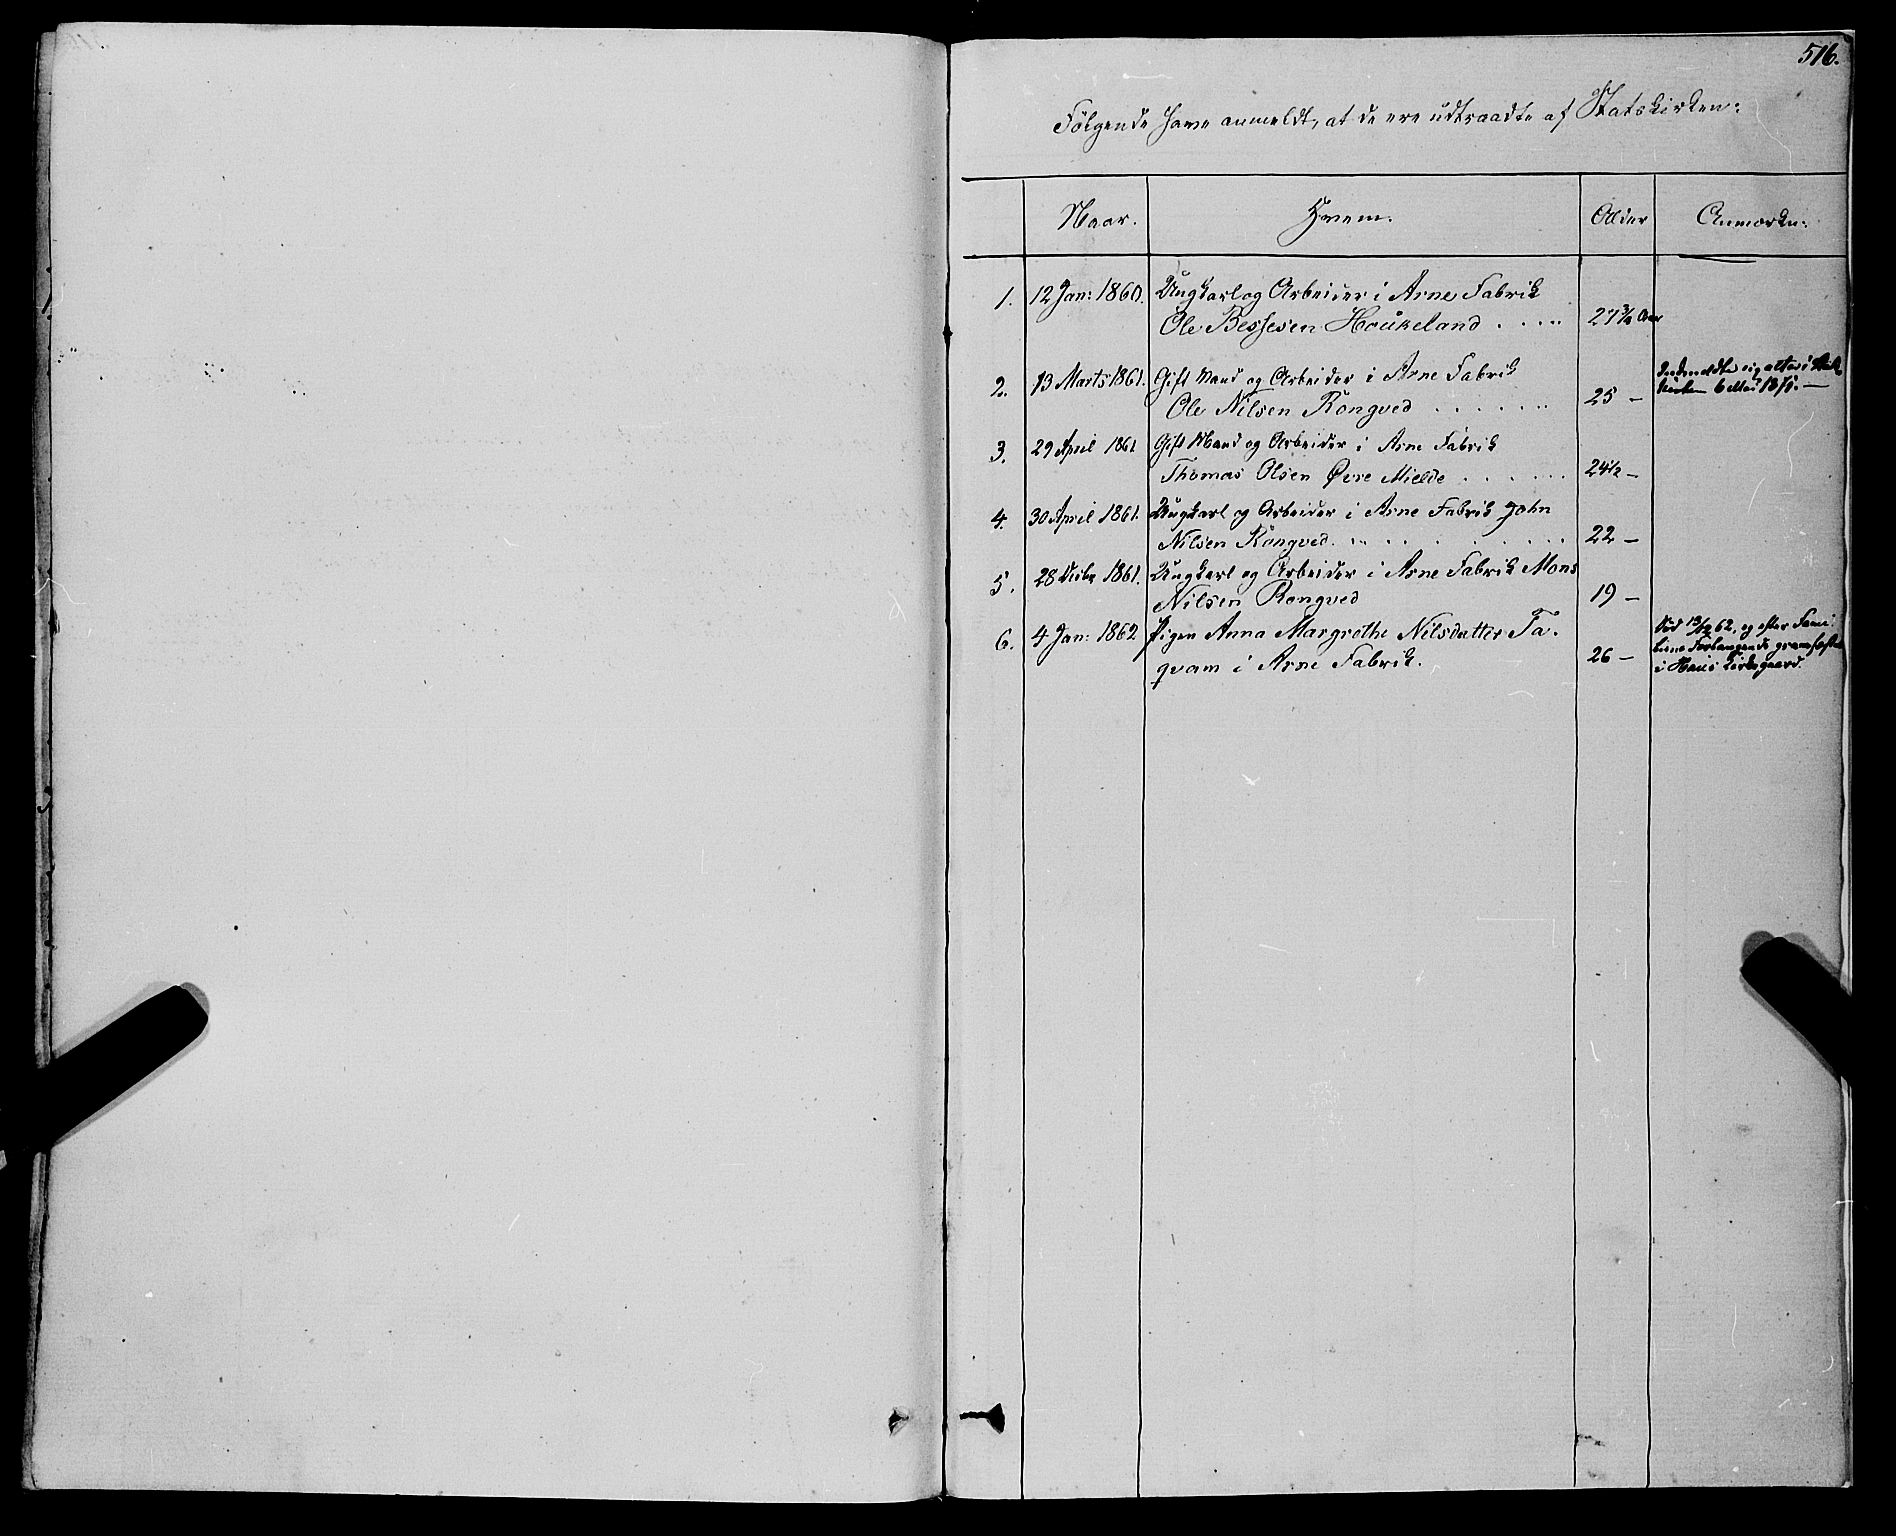 516.
Følgende have anmeldt, at de ere udtraadte af Statskirken:
Naar. Hvem. Alder Anmærkn:
1. 12 Jan: 1860. Ungkarl og Arbeider i Arne Fabrik
Ole Bessesen Houkeland . . . . 27 3/4 Aar
2. 13 Marts 1861. Gift Mand og Arbeider i Arne Fabrik
Ole Nilsen Rongved . . . . . . 25 –
Indmeldte sig atter i
kirken 6 Mai
3. 29 April 1861 Gift Mand og Arbeider i Arne Fabrik
Thomas Olsen Øvre Mielde . . . . . 24 1/2 –
4. 30 April 1861. Ungkarl og Arbeider i Arne Fabrik John
Nilsen Rongved. . . . . . . . . 22 –
5. 28 Decbr 1861. Ungkarl og Arbeider i Arne Fabrik Mons
Nilsen Rongved 19 –
6. 4 Jan: 1862. Pigen Anna Margrethe Nilsdatter Ta-
qvam i Arne Fabrik. 26 –
Død 62, og efter Fami-
liens Forlangende
i Haus Kirkegaard.